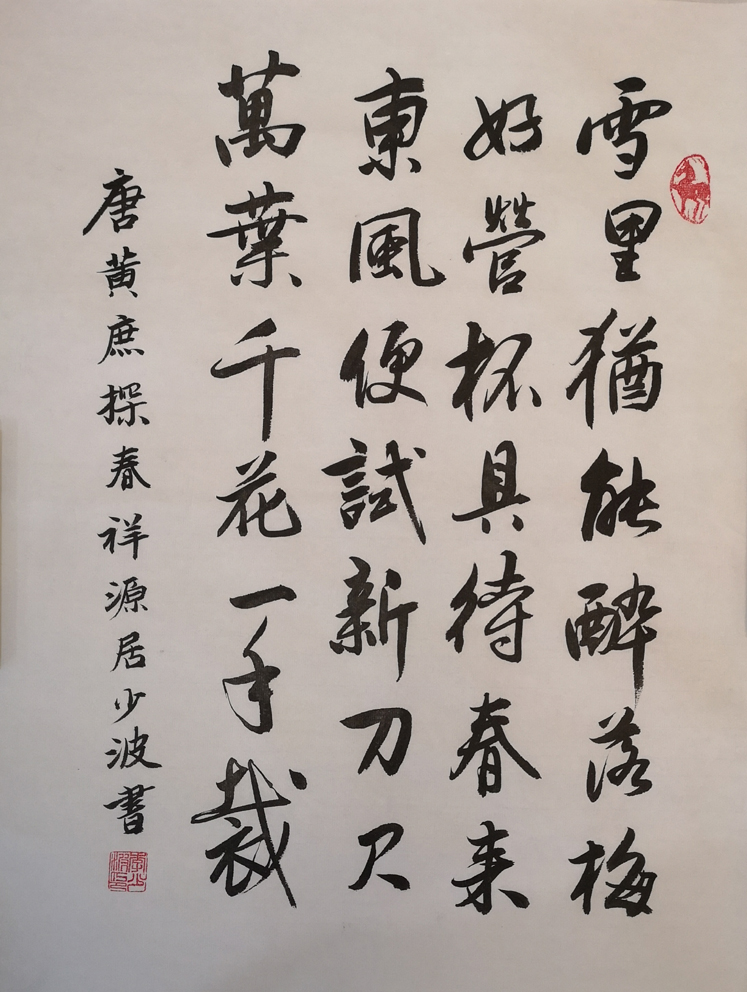 雪里猶能醉落梅
好營杯具待春来
東風便試新刀尺
萬葉千花一手裁
唐黄庶探春祥源居少波書